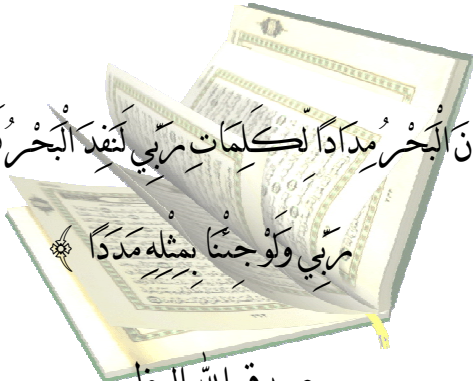 نَ الْبَحْرُ مِدَادًا لِّكَلِمَاتِ رَبِّي لَنَفِدَ الْبَحْرُ
رَبِّي وَلَوْ جِئْنَا بِمِثْلِهِ مَدَدًا ﴾
صدق الله العظيم